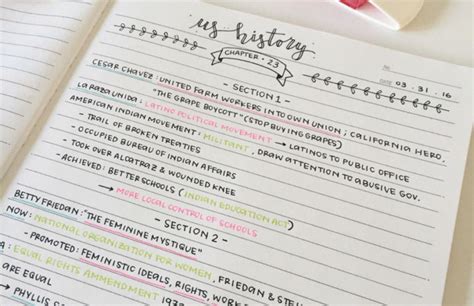 us history
CHAPTER • 23
NO.
DATE 03 . 31 . 16
- SECTION 1 -
CESAR CHAVEZ : UNITED FARM WORKERS INTO OWN UNION ; CALIFORNIA HERO.
"THE GRAPE BOYCOTT" (STOP BUYING GRAPES)
LA RAZA UNIDA : LATINO POLITICAL MOVEMENT → LATINOS TO PUBLIC OFFICE
AMERICAN INDIAN MOVEMENT : MILITANT, DRAW ATTENTION TO ABUSIVE GOV.
- TRAIL OF BROKEN TREATIES
- OCCUPIED BUREAU OF INDIAN AFFAIRS
- TOOK OVER ALCATRAZ & WOUNDED KNEE
- ACHIEVED : BETTER SCHOOLS (INDIAN EDUCATION ACT)
→ MORE LOCAL CONTROL OF SCHOOLS
- SECTION 2 -
BETTY FRIEDAN : "THE FEMININE MYSTIQUE"
NOW : NATIONAL ORGANIZATION FOR WOMEN, FRIEDAN & STEIN
- PROMOTED : FEMINISTIC IDEALS, RIGHTS, WORK
A : EQUAL RIGHTS AMMENDMENT 1972
ARE EQUAL
→ PHYLLIS